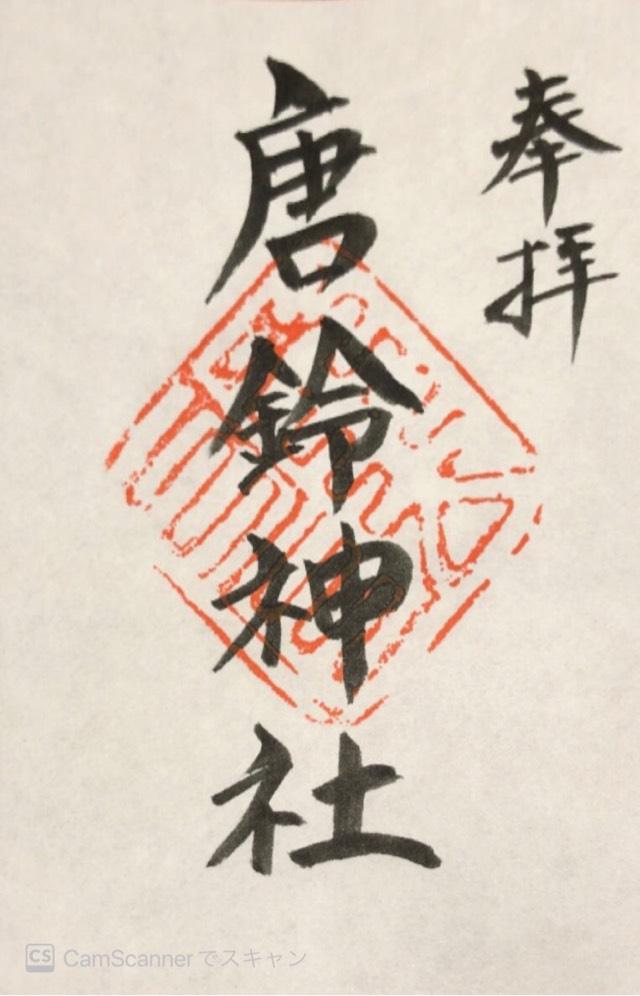 奉拝
唐鈴神社
CS CamScannerでスキャン